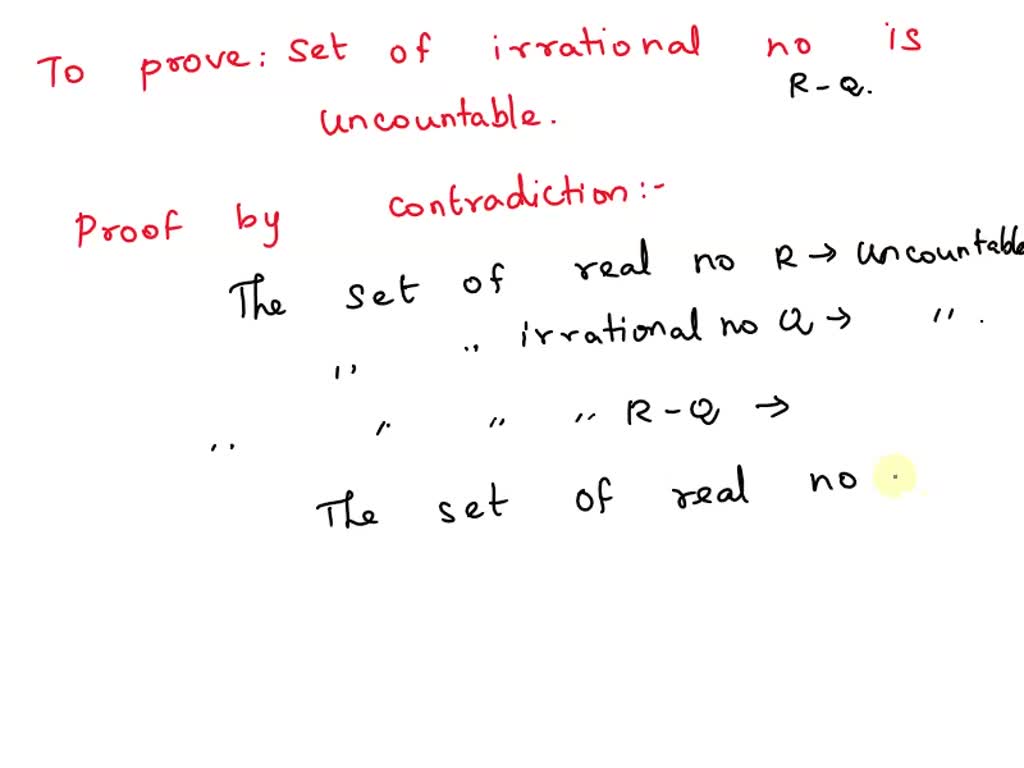 To prove: Set of irrational no is
R-Q.
uncountable.
Proof by contradiction:-
The set of real no R → uncountable
" " irrational no Q → " .
" " " " R-Q →
The set of real no